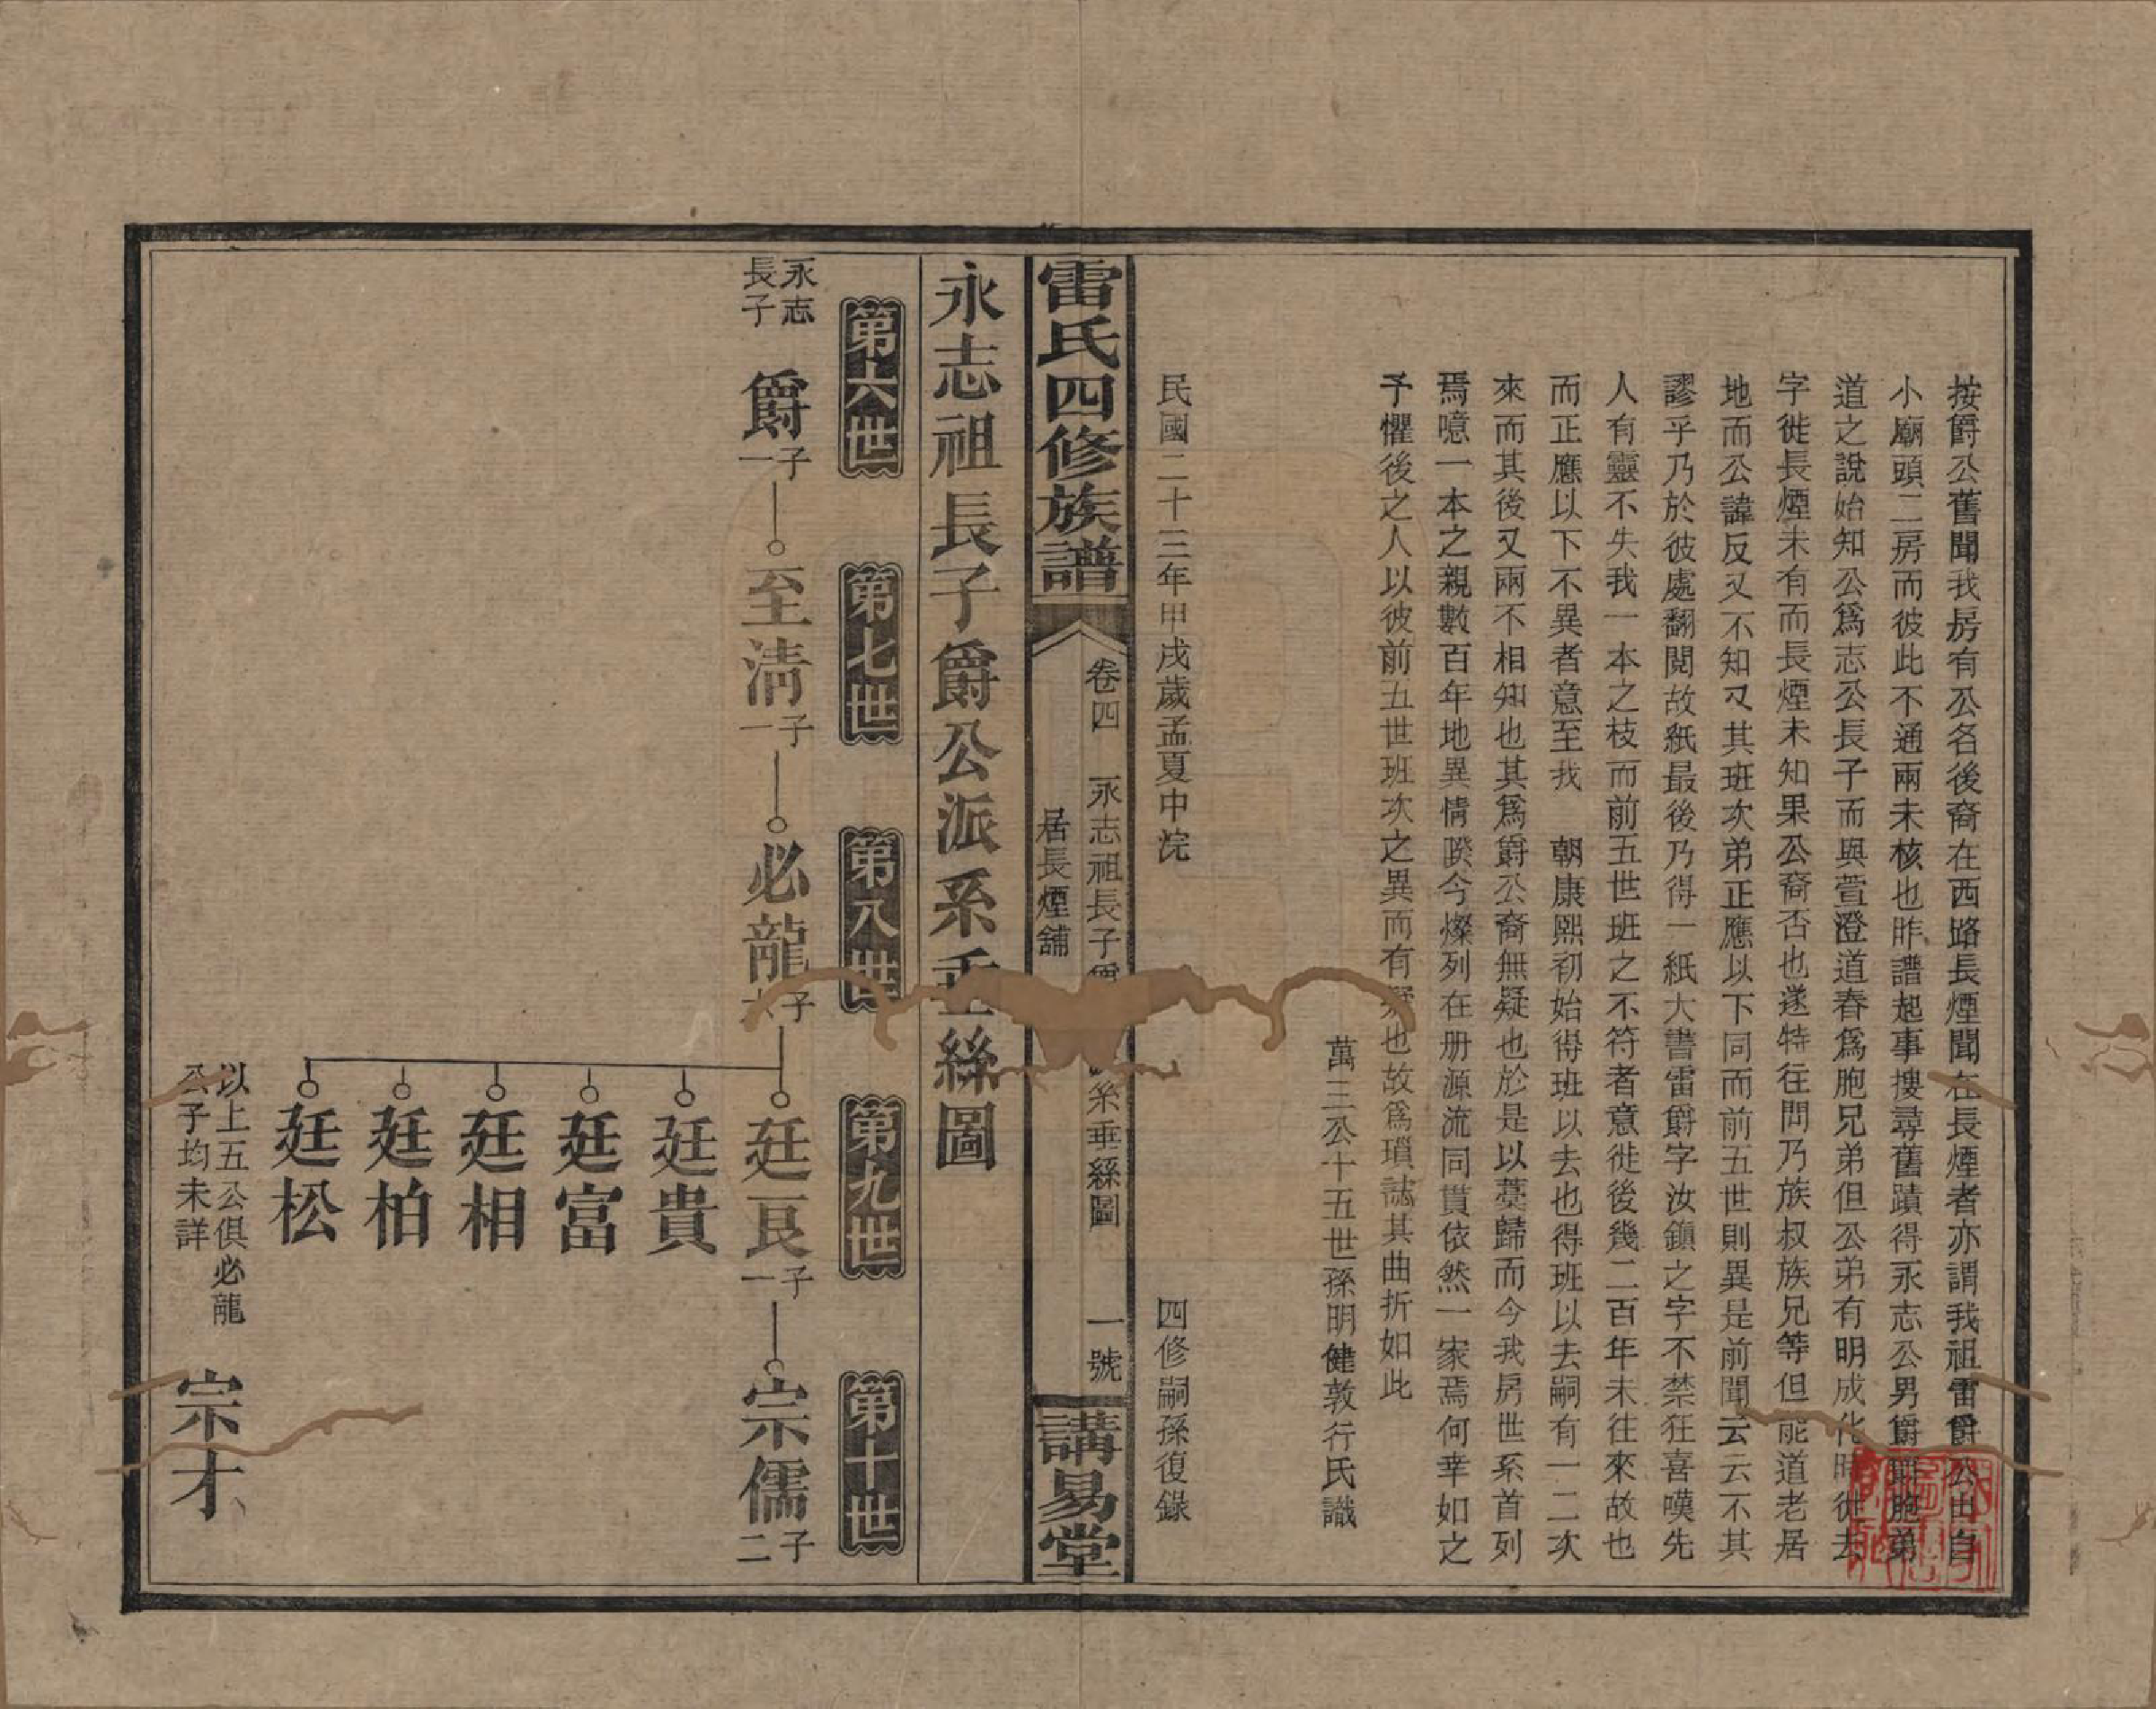 按爵公舊聞我房有公名後裔在西路長煙聞在長煙者亦謂我祖雷爵公出自
小廟頭二房而彼此不通兩未核也昨譜起事搜尋舊蹟得永志公男爵胞弟
道之說始知公爲志公長子而與萱澄道春爲胞兄弟但公弟有明成化時徙去
字徙長煙未有而長煙未知果公裔否也遂特往問乃族叔族兄等但能道老居
地而公諱反又不知又其班次弟正應以下同而前五世則異是前聞云云不其
謬乎乃於彼處翻閱故紙最後乃得一紙大書雷爵字汝鎮之字不禁狂喜嘆先
人有靈不失我一本之枝而前五世班之不符者意徙後幾二百年未往來故也
而正應以下不異者意至我 朝康熙初始得班以去也得班以去嗣有一二次
來而其後又兩不相知也其爲爵公裔無疑也於是以藁歸而今我房世系首列
焉噫一本之親數百年地異情睽今燦列在册源流同貫依然一家焉何幸如之
予懼後之人以彼前五世班次之異而有疑也故爲瑣誌其曲折如此
萬三公十五世孫明健敦行氏識
民國二十三年甲戌歲孟夏中浣 四修嗣孫復錄
雷氏四修族譜
卷四 永志祖長子爵系垂絲圖 一號
居長煙舖
講易堂
永志祖長子爵公派系垂絲圖
第六世 第七世 第八世 第九世 第十世
永志長子 爵 一子 至淸 一子 必龍 六子 廷良 一子 宗儒 二子
廷貴
廷富
廷相
廷柏
廷松
以上五公俱必龍
公子均未詳
宗才